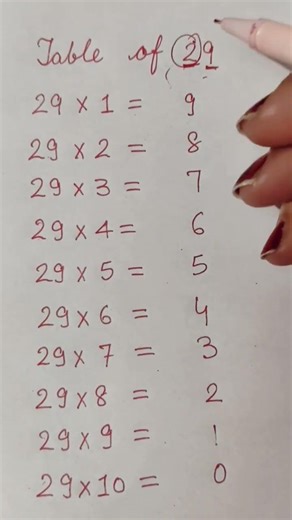 Table of 29
29 × 1 = 9
29 × 2 = 8
29 × 3 = 7
29 × 4 = 6
29 × 5 = 5
29 × 6 = 4
29 × 7 = 3
29 × 8 = 2
29 × 9 = 1
29 × 10 = 0